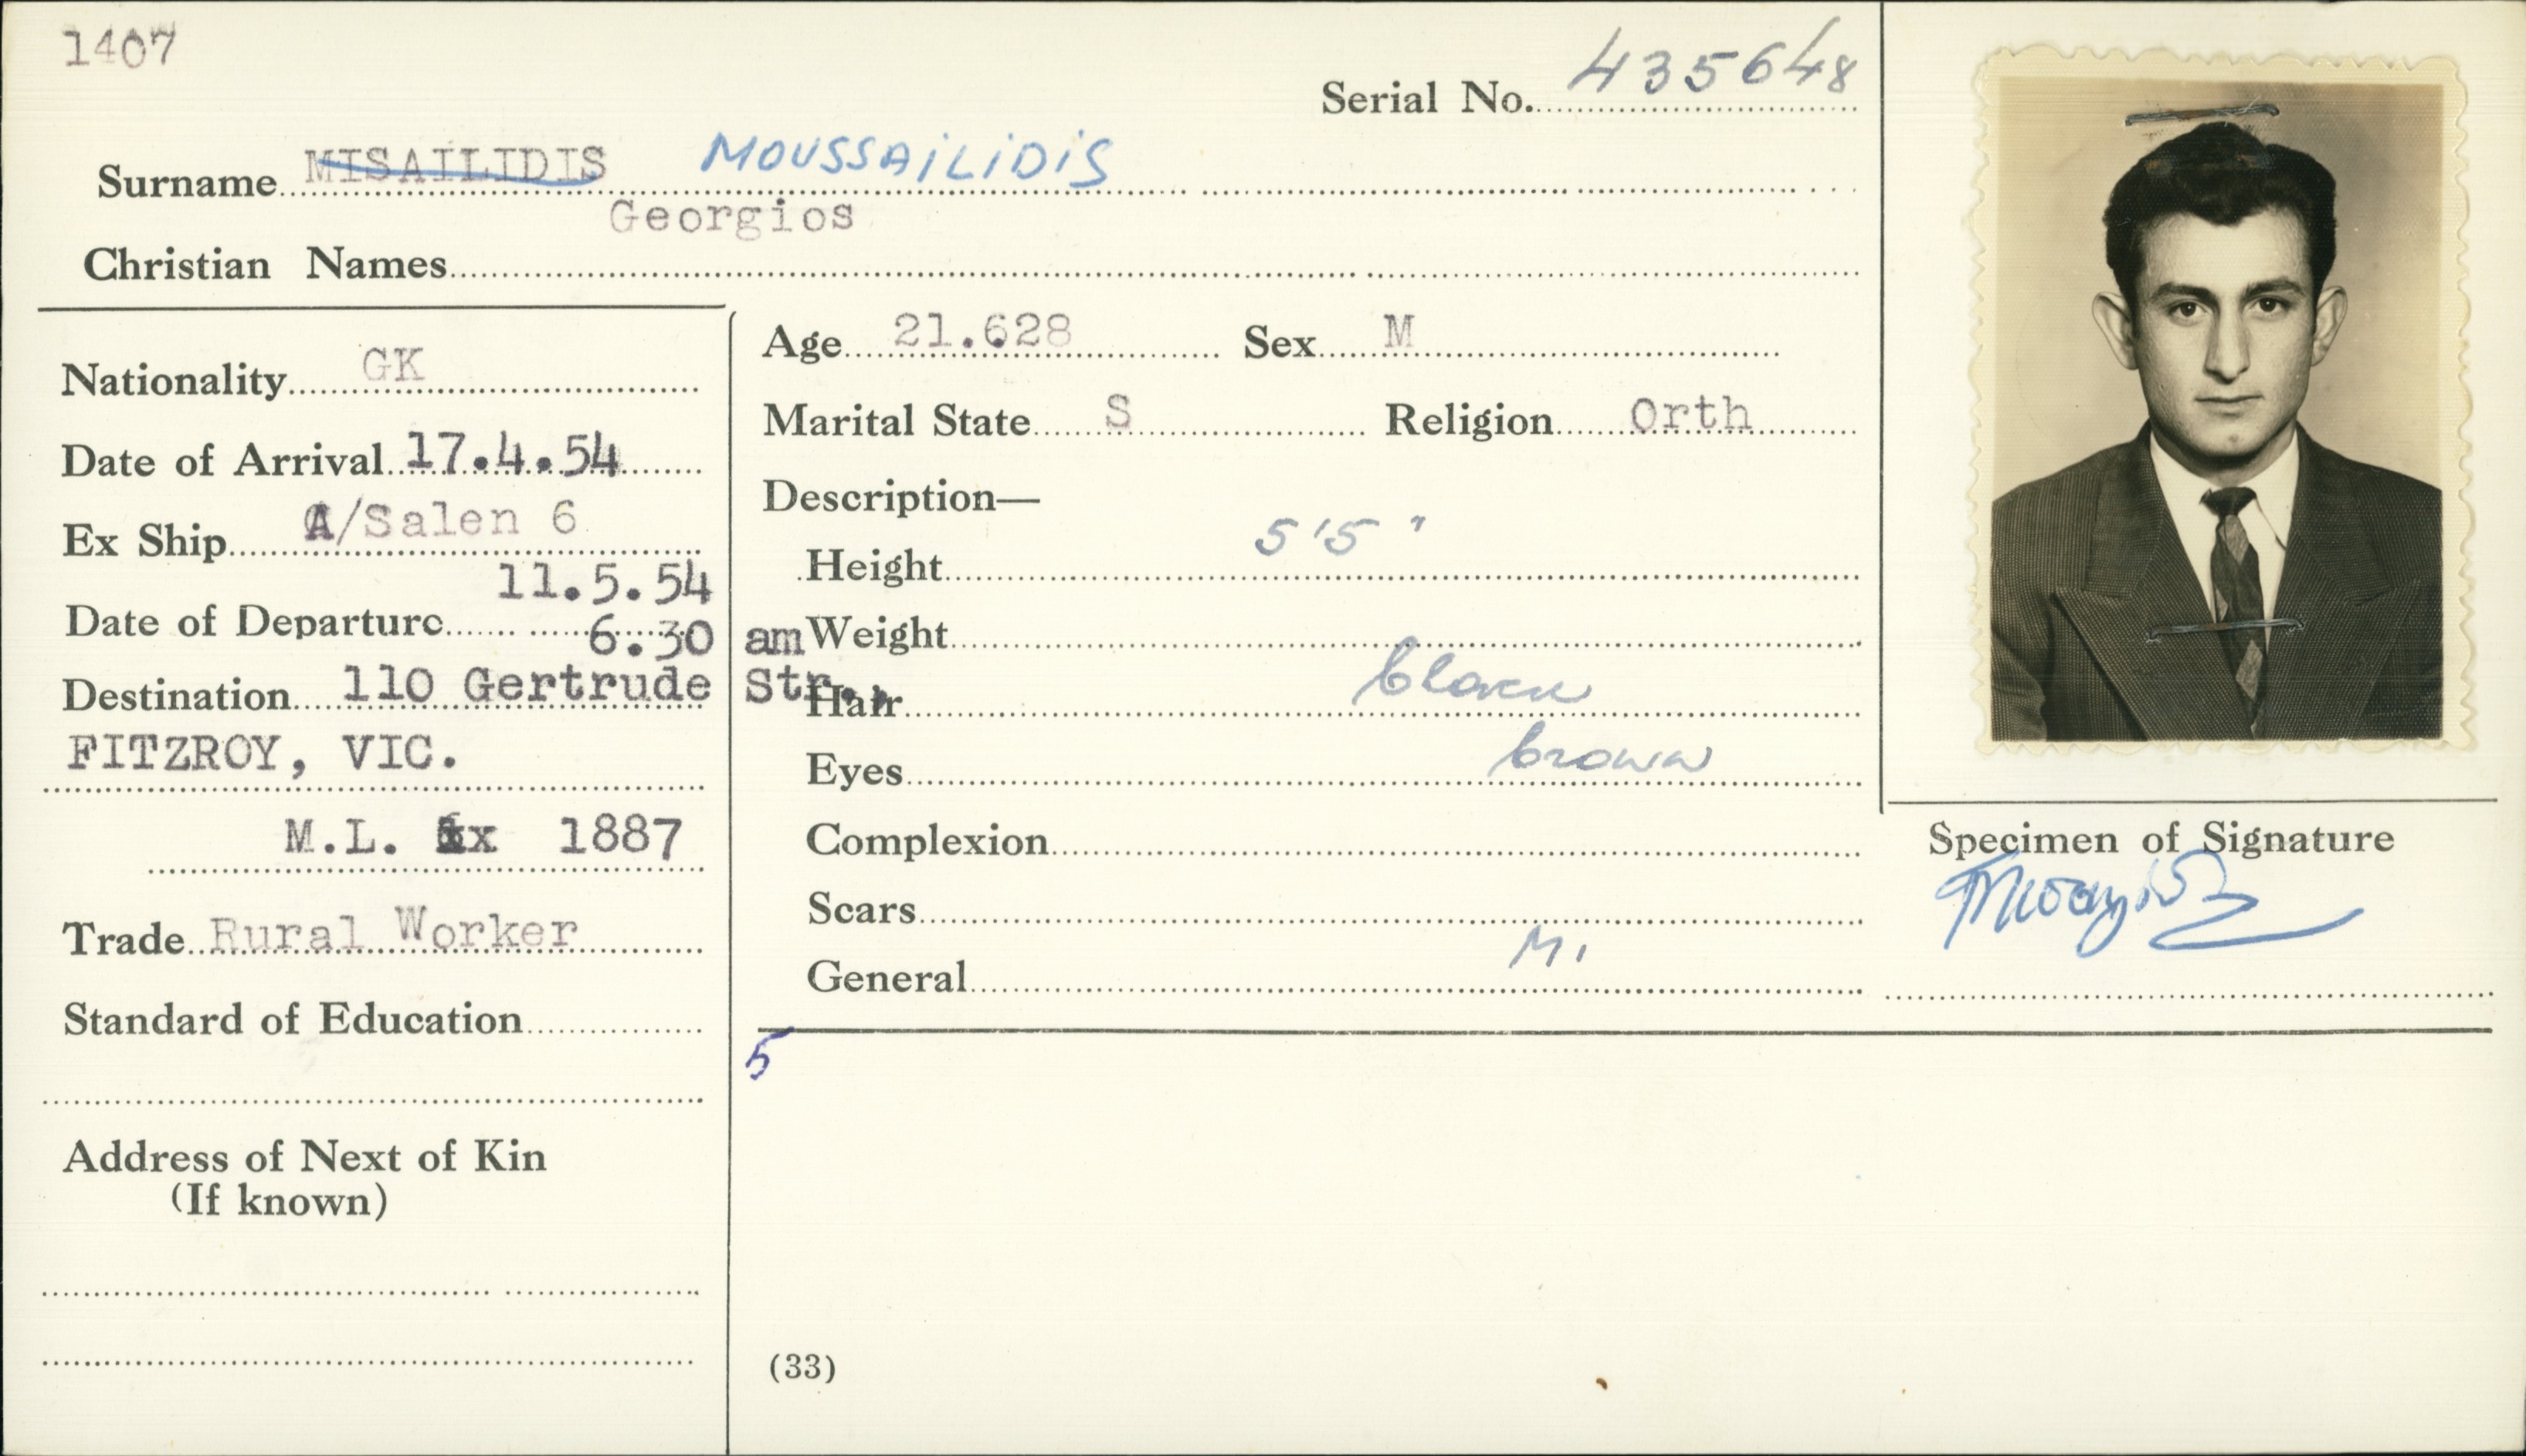 1407
Serial No. 435648
Surname MISAILIDIS MOUSSAILIDIS
Georgios
Christian Names
Nationality GK
Date of Arrival 17.4.54
Ex Ship A/Salen 6
11.5.54
Date of Departure 6.30 am
Destination 110 Gertrude Str.,
FITZROY, VIC.
M.L. 1887
Trade Rural Worker
Standard of Education
Address of Next of Kin
(If known)
Age 21.628 Sex M
Marital State S Religion Orth
Description—
Height 5'5"
Weight
Hair black
Eyes brown
Complexion
Scars
General
5
(33)
Specimen of Signature